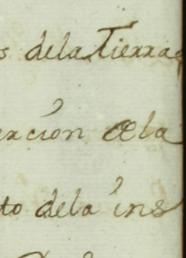 s dela Tierra
ercion dela
to dela ins